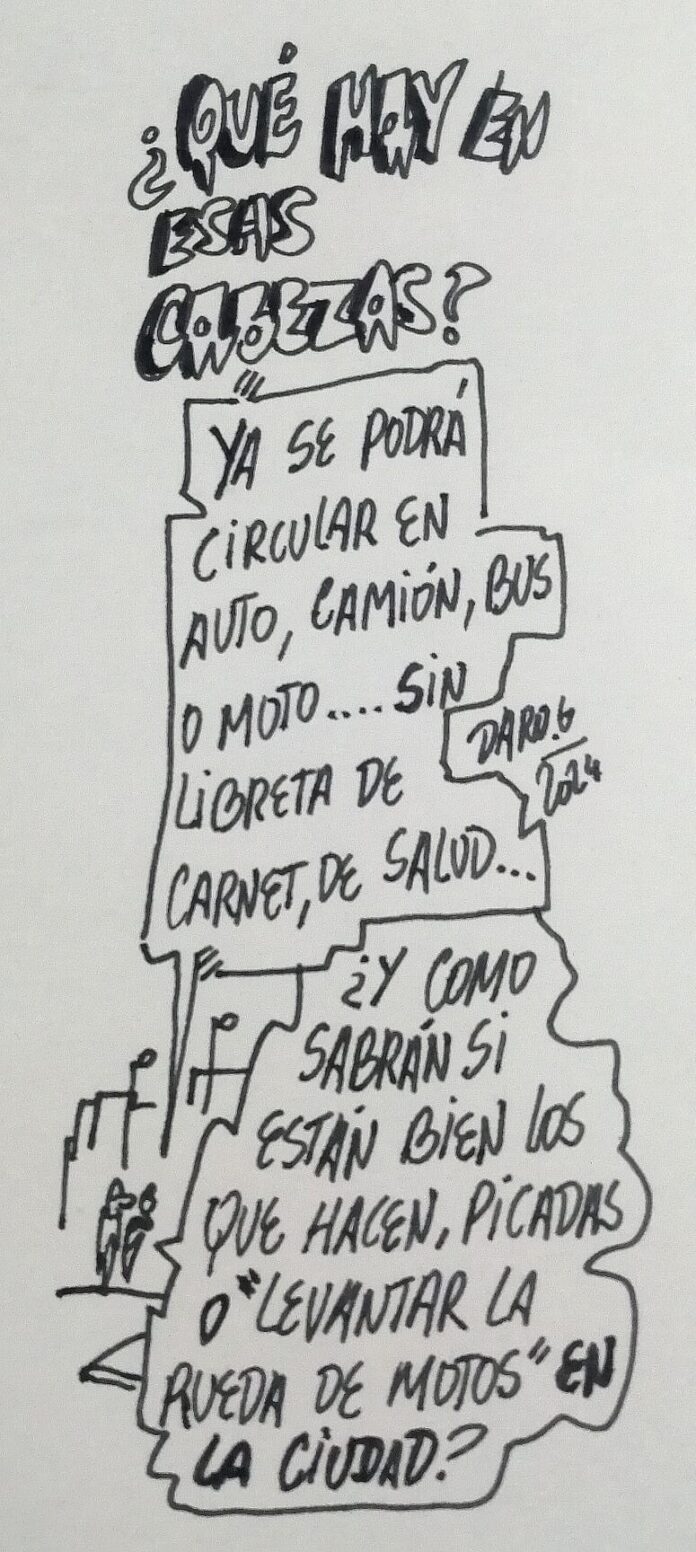 ¿QUÉ HAY EN
ESAS
CABEZAS?
YA SE PODRÁ
CIRCULAR EN
AUTO, CAMIÓN, BUS
O MOTO.... SIN
LIBRETA DE
CARNET, DE SALUD...
DARO.G
2024
¿Y COMO
SABRÁN SI
ESTÁN BIEN LOS
QUE HACEN, PICADAS
O "LEVANTAR LA
RUEDA DE MOTOS" EN
LA CIUDAD?